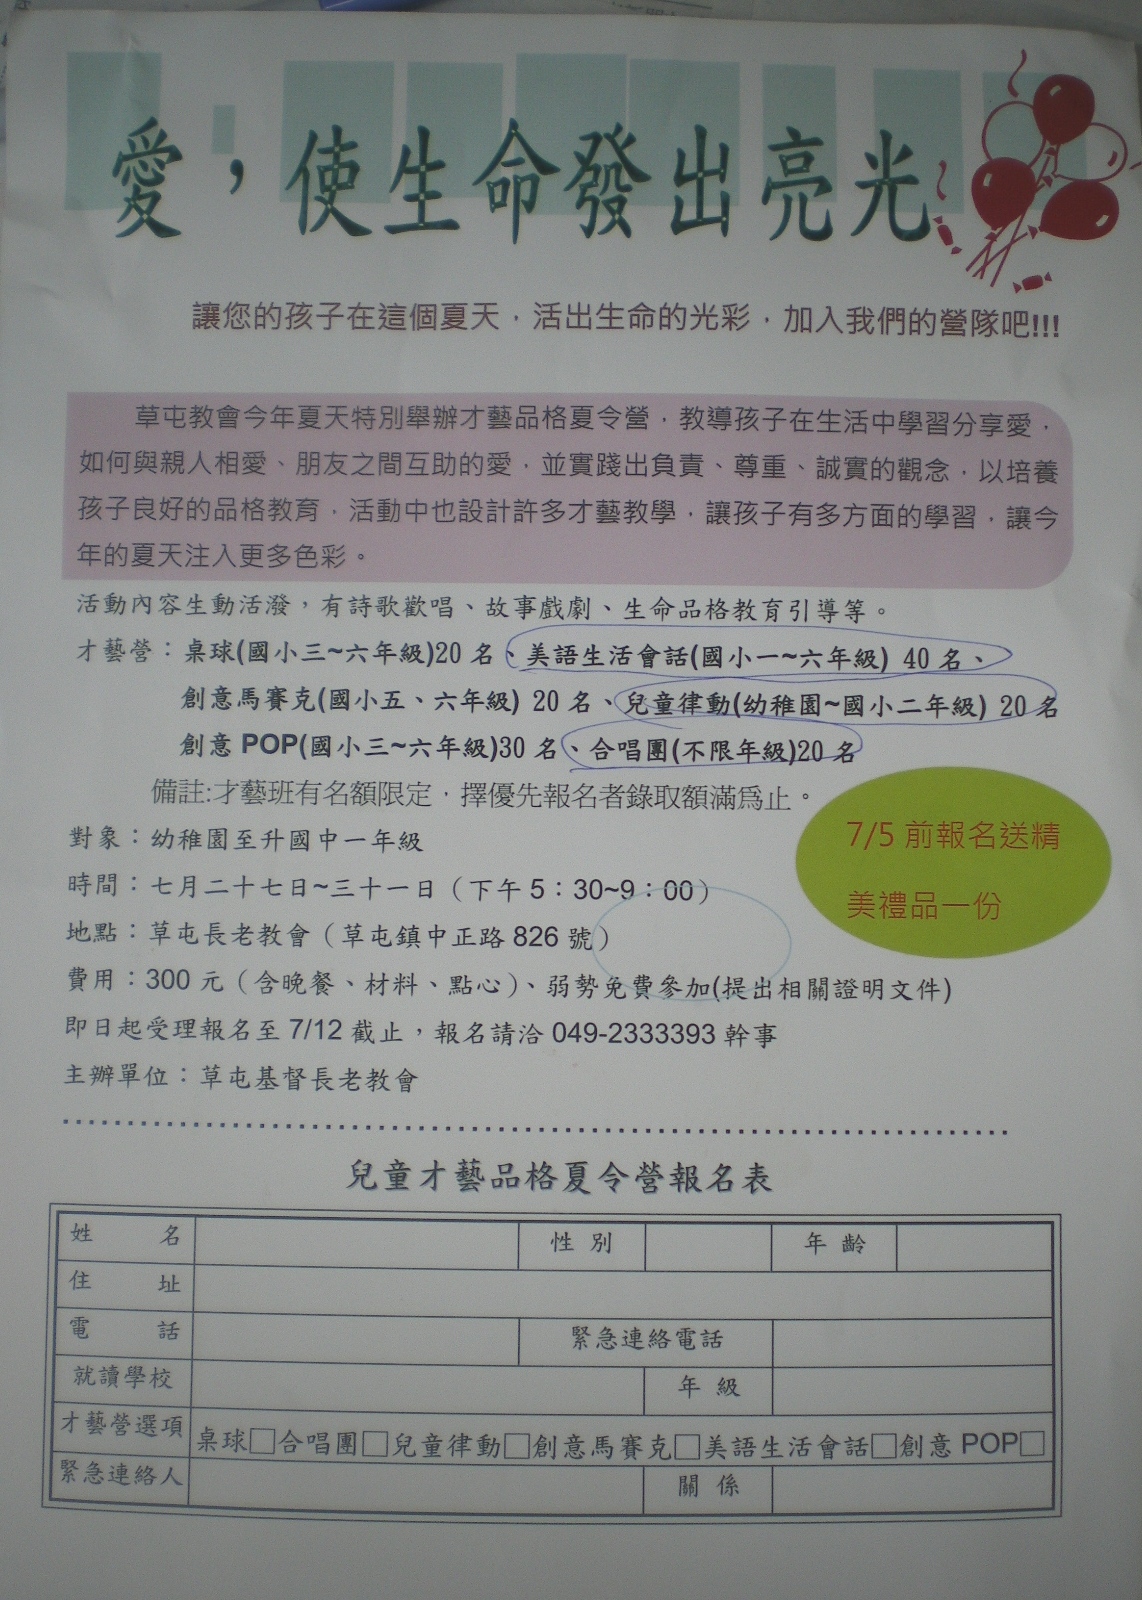 愛，使生命發出亮光
讓您的孩子在這個夏天，活出生命的光彩，加入我們的營隊吧!!!
草屯教會今年夏天特別舉辦才藝品格夏令營，教導孩子在生活中學習分享愛，
如何與親人相愛、朋友之間互助的愛，並實踐出負責、尊重、誠實的觀念，以培養
孩子良好的品格教育，活動中也設計許多才藝教學，讓孩子有多方面的學習，讓今
年的夏天注入更多色彩。
活動內容生動活潑，有詩歌歡唱、故事戲劇、生命品格教育引導等。
才藝營：桌球(國小三~六年級)20 名、美語生活會話(國小一~六年級) 40 名、
創意馬賽克(國小五、六年級) 20 名、兒童律動(幼稚園~國小二年級) 20 名
創意 POP(國小三~六年級)30 名、合唱團(不限年級)20 名
備註:才藝班有名額限定，擇優先報名者錄取額滿為止。
7/5 前報名送精
美禮品一份
對象：幼稚園至升國中一年級
時間：七月二十七日~三十一日（下午 5：30~9：00）
地點：草屯長老教會（草屯鎮中正路 826 號）
費用：300 元（含晚餐、材料、點心）、弱勢免費參加(提出相關證明文件)
即日起受理報名至 7/12 截止，報名請洽 049-2333393 幹事
主辦單位：草屯基督長老教會
兒童才藝品格夏令營報名表
姓 名 性 別 年 齡
住 址
電 話 緊急連絡電話
就讀學校 年 級
才藝營選項 桌球□合唱團□兒童律動□創意馬賽克□美語生活會話□創意 POP□
緊急連絡人 關 係